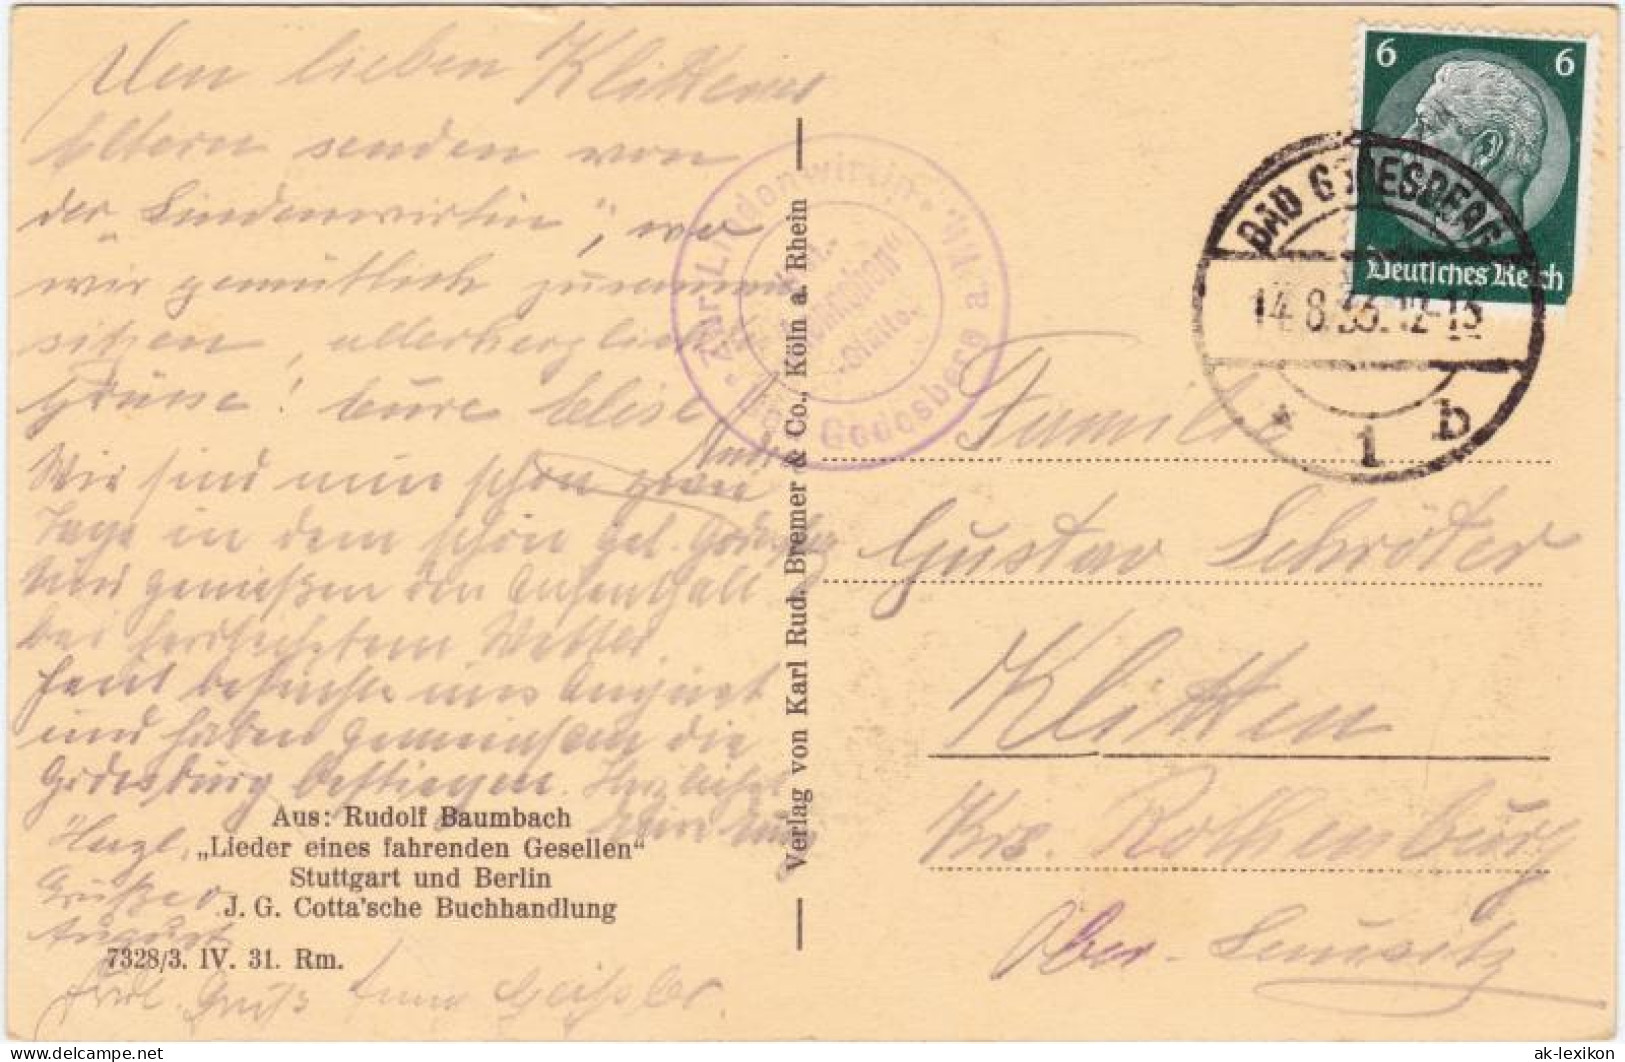 lieben Klittener
Eltern senden von
der Lindenwirtin", wo
wir gemütlich zusammen
sitzen, allerherzlichste
Grüsse! Eure Elise
Wir sind nun schon
Tage in dem schön gel. Godesberg
und genießen den Aufenthalt
bei herrlichstem Wetter.
Heut besuchte uns August
und haben gemeinsam die
Godesburg bestiegen.
Aus: Rudolf Baumbach
„Lieder eines fahrenden Gesellen"
Stuttgart und Berlin
J. G. Cotta'sche Buchhandlung
Herzl.
Grüße
August
7328/3. IV. 31. Rm.
Gruß
Verlag von Karl Rud. Bremer & Co., Köln a. Rhein
Zur Lindenwirtin
Godesberg a. Rh.
6 6
Deutsches Reich
BAD GODESBERG
14.8.33.12-13
* 1 b
Familie
Gustav Schröter
Klitten
Krs. Rothenburg
Ober-Lausitz
ak-lexikon